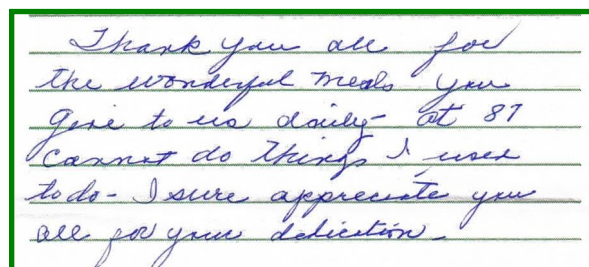 Thank you all for
the wonderful meals you
give to us daily - at 87
cannot do things I used
to do - I sure appreciate you
all for your dedication.